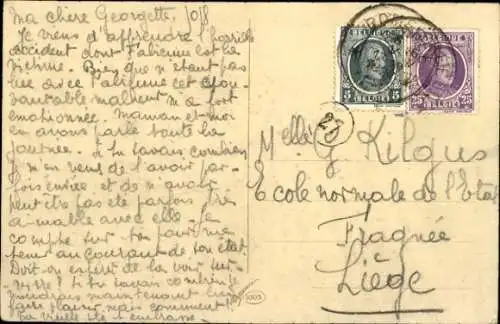 Ma chère Georgette,
Je viens d'apprendre l'horrible
accident dont Fabienne est la
victime. Bien que n'étant pas
liée avec Fabienne cet épou-
vantable malheur m'a fort
émotionnée. Maman et moi
en avons parlé toute la
journée. Si tu savais combien
je m'en veux de l'avoir par-
fois enviée et de n'avoir
peut être pas été parfois très
aimable avec elle. Je
compte sur toi pour me
tenir au courant de son état.
Doit-on espérer de la voir sur-
vivre? Si tu savais comme je
voudrais maintenant lui
faire plaisir, mais comment?
Ta vieille t'embrasse
BELGIQUE
5 5
BELGIE
BELGIQUE
25 25
BELGIE
25
Melle G. Kilgus
Ecole normale de l'Etat
Fragnée
Liège